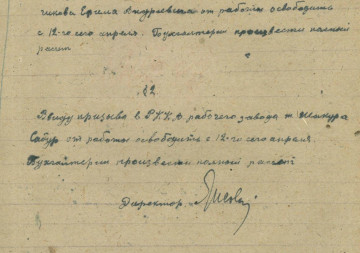 чикова Ефима Андреевича от работы освободить
с 12-го сего апреля. Бухгалтерии произвести полный
расчет
§2
Ввиду призыва в РККА рабочего завода т.
Сабур от работы освободить с 12-го сего апреля
Бухгалтерии произвести полный расчет
Директор